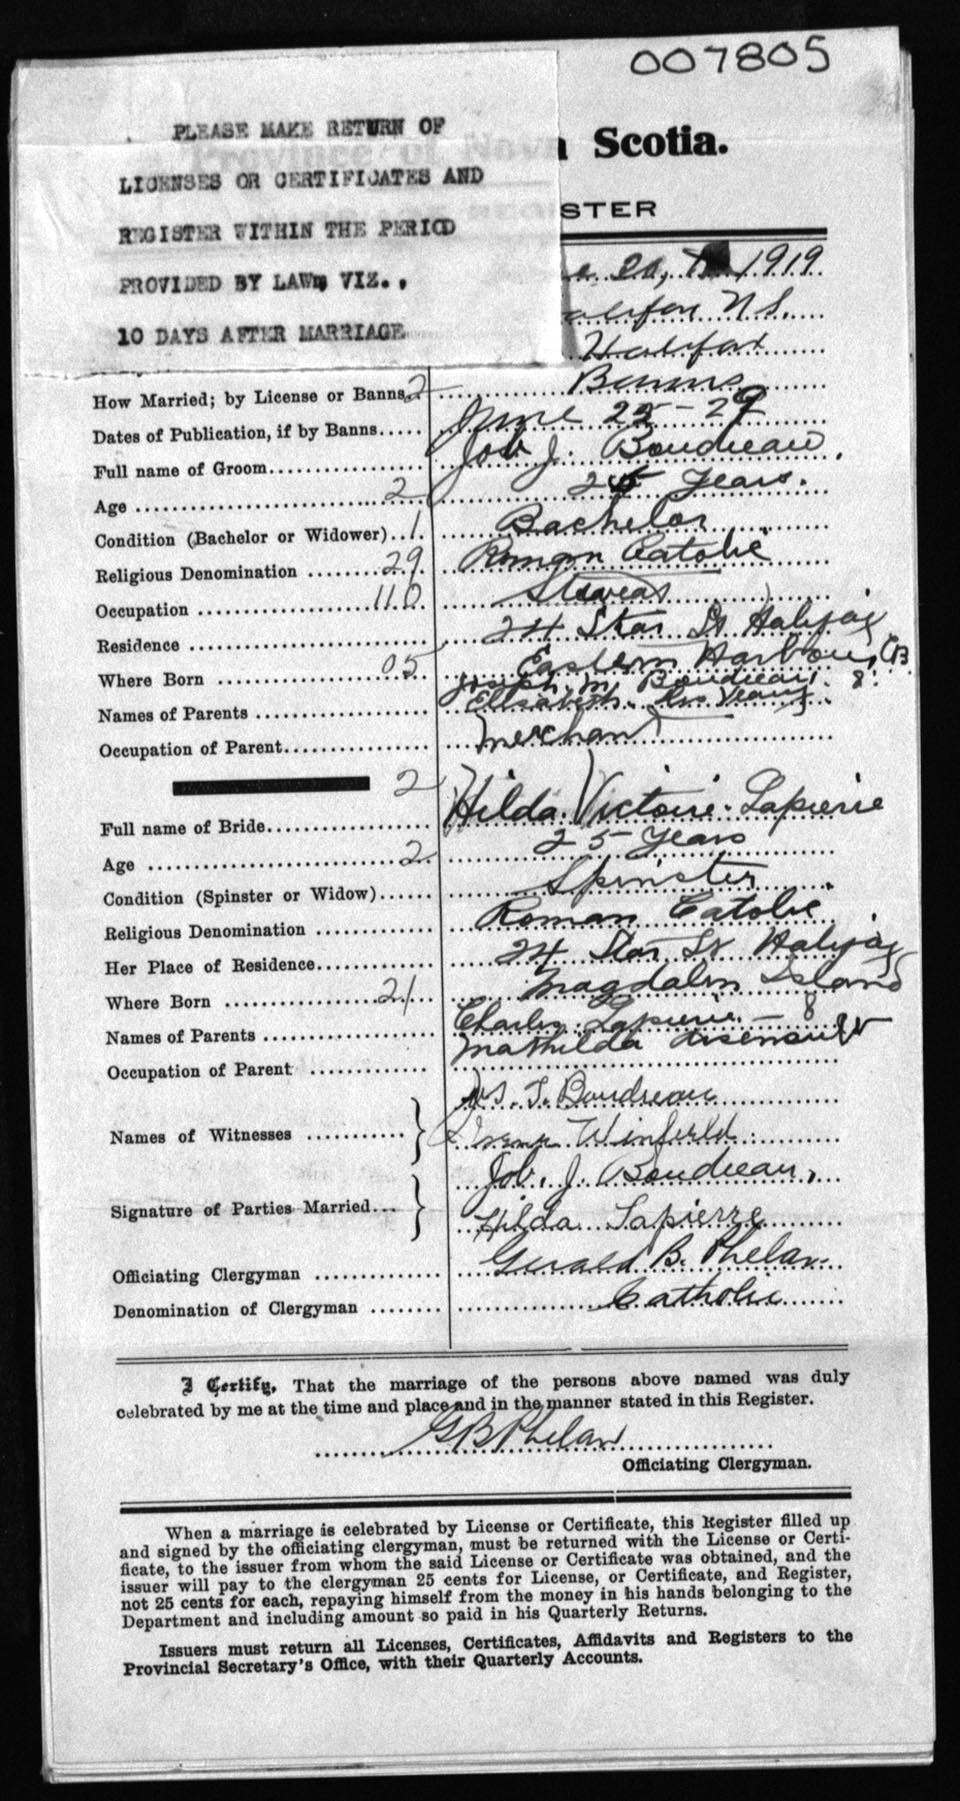 007805
PLEASE MAKE RETURN OF
LICENSES OR CERTIFICATES AND
REGISTER WITHIN THE PERIOD
PROVIDED BY LAW, VIZ..
10 DAYS AFTER MARRIAGE
Province of Nova Scotia.
STER
1919
alifax N.S.
Halifax
How Married; by License or Banns 2 Banns
Dates of Publication, if by Banns..... June 22-29
Full name of Groom Job J. Boudreau
Age 2 25 Years.
Condition (Bachelor or Widower) 1 Bachelor
Religious Denomination 29 Roman Catolic
Occupation 110
Residence 24 Star St Halifax
Where Born 05 Eastern Harbour, CB
Names of Parents Joseph M. Boudreau 8
Elisabeth
Occupation of Parent Merchant
2
Full name of Bride Hilda Victoire Lapierre
Age 2 25 Years
Condition (Spinster or Widow) Spinster
Religious Denomination Roman Catolic
Her Place of Residence 24 Star St Halifax
Where Born 21 Magdalen Island
Names of Parents Charles Lapierre - 8
Mathilda
Occupation of Parent
Names of Witnesses J. Boudreau
Winfield
Signature of Parties Married... Job. J. Boudreau,
Hilda Lapierre
Officiating Clergyman Gerald B. Phelan
Denomination of Clergyman Catholic
I Certify, That the marriage of the persons above named was duly
celebrated by me at the time and place and in the manner stated in this Register.
GB Phelan
Officiating Clergyman.
When a marriage is celebrated by License or Certificate, this Register filled up
and signed by the officiating clergyman, must be returned with the License or Certi-
ficate, to the issuer from whom the said License or Certificate was obtained, and the
issuer will pay to the clergyman 25 cents for License, or Certificate, and Register,
not 25 cents for each, repaying himself from the money in his hands belonging to the
Department and including amount so paid in his Quarterly Returns.
Issuers must return all Licenses, Certificates, Affidavits and Registers to the
Provincial Secretary's Office, with their Quarterly Accounts.